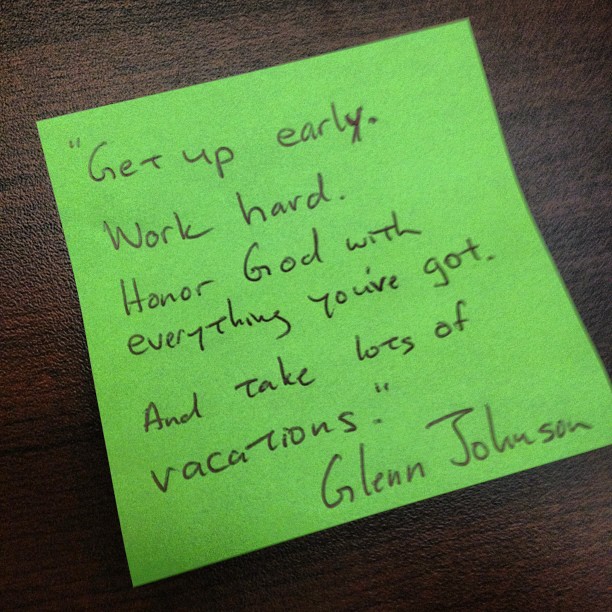 "Get up early.
Work hard.
Honor God with
everything you've got.
And take lots of
vacations."
Glenn Johnson